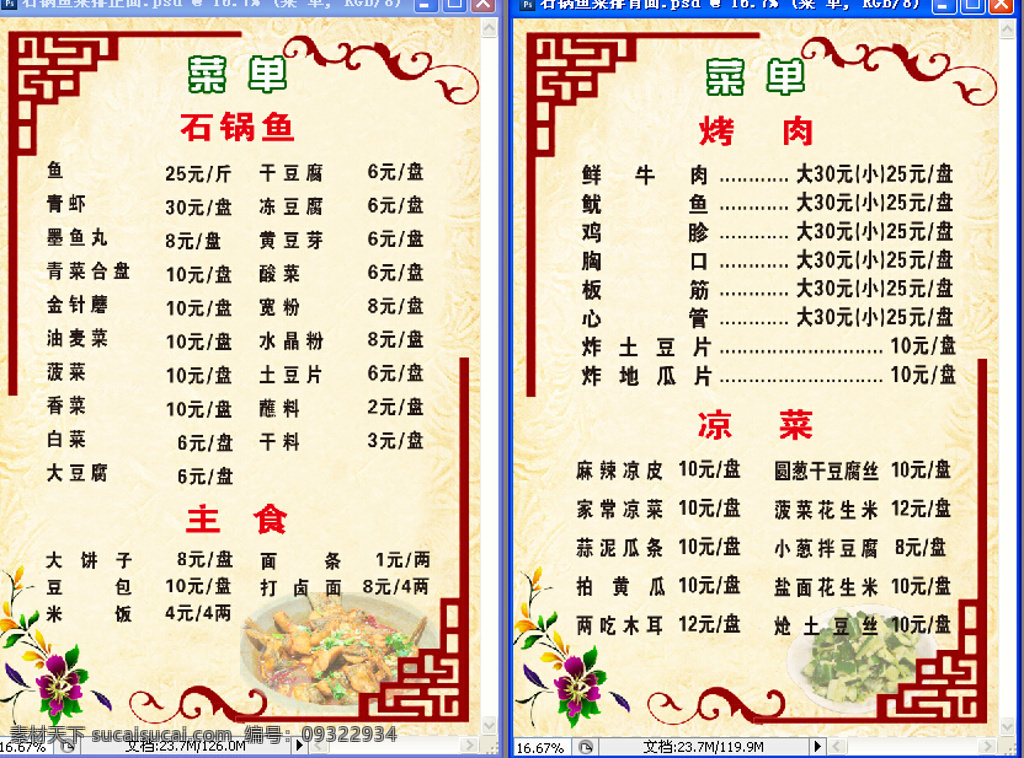 石锅鱼菜排正面.psd @ 16.7% (菜 单, RGB/8)
菜 单
石锅鱼
鱼 25元/斤 干豆腐 6元/盘
青虾 30元/盘 冻豆腐 6元/盘
墨鱼丸 8元/盘 黄豆芽 6元/盘
青菜合盘 10元/盘 酸菜 6元/盘
金针蘑 10元/盘 宽粉 8元/盘
油麦菜 10元/盘 水晶粉 8元/盘
菠菜 10元/盘 土豆片 6元/盘
香菜 10元/盘 蘸料 2元/盘
白菜 6元/盘 干料 3元/盘
大豆腐 6元/盘
主 食
大饼子 8元/盘 面条 1元/两
豆包 10元/盘 打卤面 8元/4两
米饭 4元/4两
素材天下 sucaisucai.com 编号：09322934
16.67% 文档:23.7M/126.0M
石锅鱼菜排背面.psd @ 16.7% (菜 单, RGB/8)
菜 单
烤 肉
鲜牛肉 ............ 大30元(小)25元/盘
鱿鱼 ............ 大30元(小)25元/盘
鸡胗 ............ 大30元(小)25元/盘
胸口 ............ 大30元(小)25元/盘
板筋 ............ 大30元(小)25元/盘
心管 ............ 大30元(小)25元/盘
炸土豆片 ............................ 10元/盘
炸地瓜片 ............................ 10元/盘
凉 菜
麻辣凉皮 10元/盘 圆葱干豆腐丝 10元/盘
家常凉菜 10元/盘 菠菜花生米 12元/盘
蒜泥瓜条 10元/盘 小葱拌豆腐 8元/盘
拍黄瓜 10元/盘 盐面花生米 10元/盘
两吃木耳 12元/盘 炝土豆丝 10元/盘
16.67% 文档:23.7M/119.9M